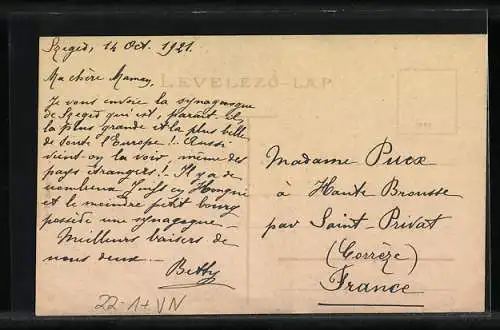 Szeged, 14 Oct. 1921.
Ma chère Maman,
LEVELEZŐ-LAP
Je vous envoie la synagogue
de Szeged qui est, paraît-il,
la plus grande et la plus belle
de toute l'Europe! Aussi
vient-on la voir, même des
pays étrangers! Il y a de
nombreux Juifs en Hongrie
et le moindre petit bourg
possède une synagogue.
Meilleurs baisers de
nous deux.
Betty
Madame Puex
à Haute Brousse
par Saint-Privat
(Corrèze)
France
22-1+VN